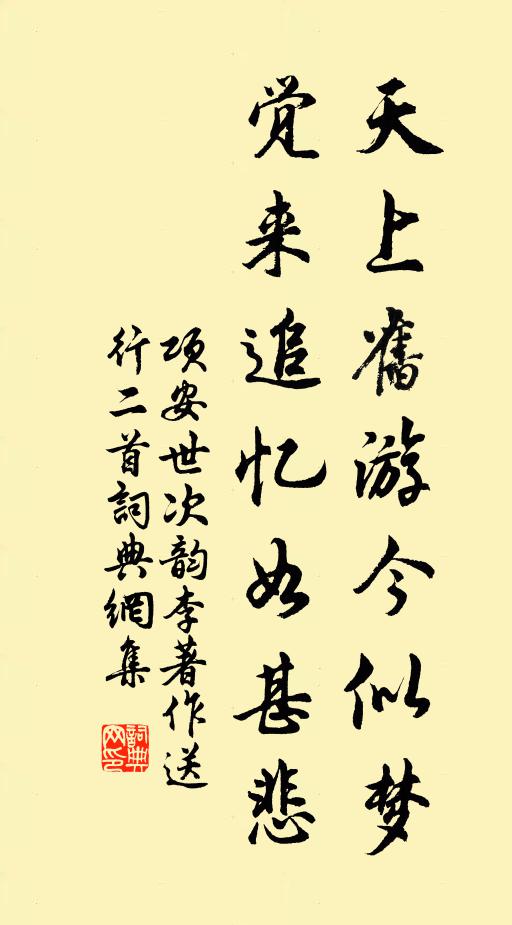 天上舊游今似梦
觉来追忆如甚悲
项安世次韵李著作送
行二首詞典網集
詞典
网印